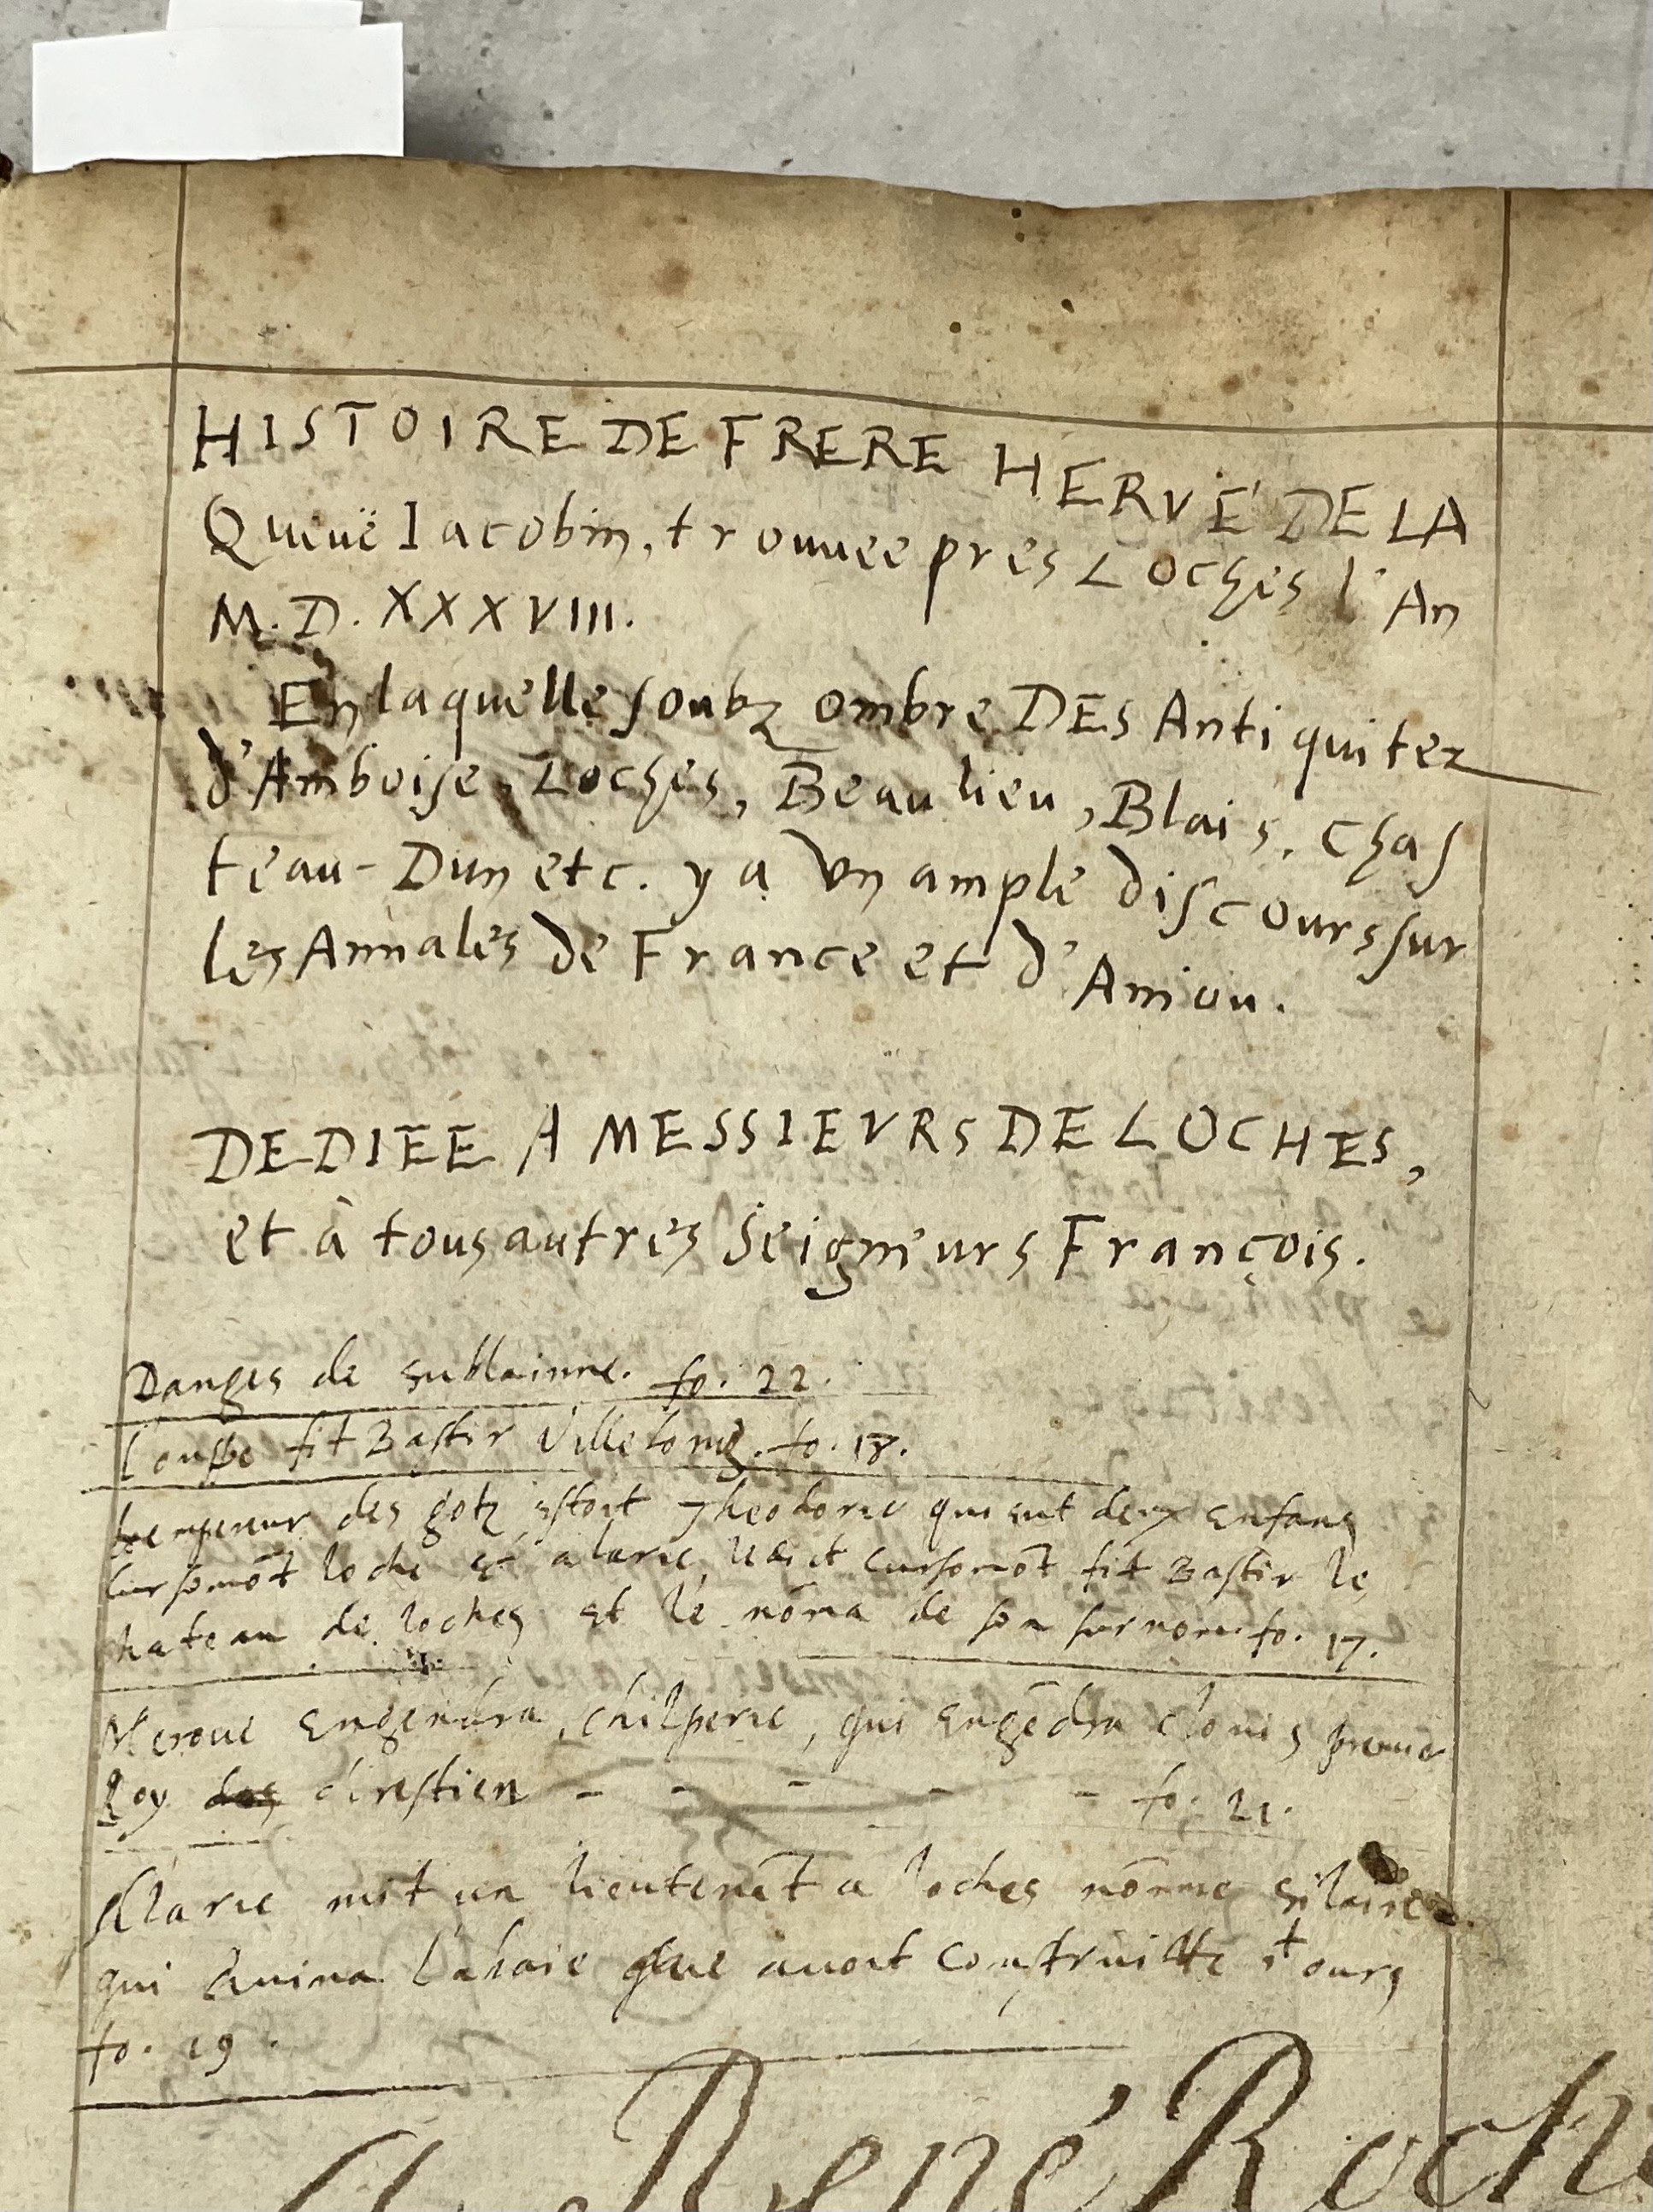 HISTOIRE DE FRERE HERVÉ DE LA
Queuë Iacobin, trouuee pres Loches l'An
M. D. XXXVIII.
En laquelle soubz ombre DES Antiquitez
d'Amboise, Loches, Beaulieu, Blais, Chas
teau-Dun etc. y a vn ample discours sur
les Annales de France et d'Aniou.
DEDIEE A MESSIEVRS DE LOCHES,
et à tous autres Seigneurs François.
Danges de sublainne. fo. 22.
Louppe fit Bastir Villeloing. fo. 18.
empereur des gotz estoit Theodoric qui eut deux enfans
Cursomōt loche et alaric, led Cursomōt fit Bastir le
chateau de loches et le nōma de son surnom fo. 17.
Meroue engendra, chilperic, qui engēdra clouis premier
Roy des crestien - - - - - fo. 21.
Alaric mit un lieutenāt a loches nōmé silaire
qui ruina l'abaie que auoit construitte st ours
fo. 19.
René Roch